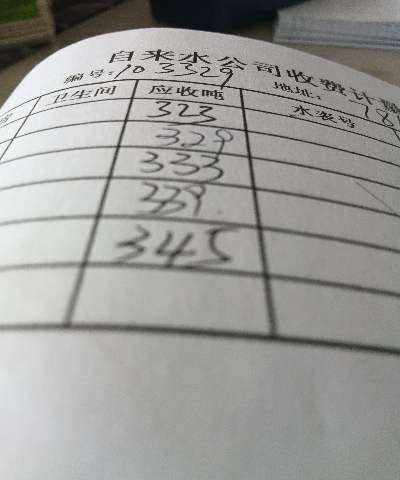 自来水公司收费计量
编号:103329 地址: 18
卫生间 应收吨 水表号
323
329
333
339
345